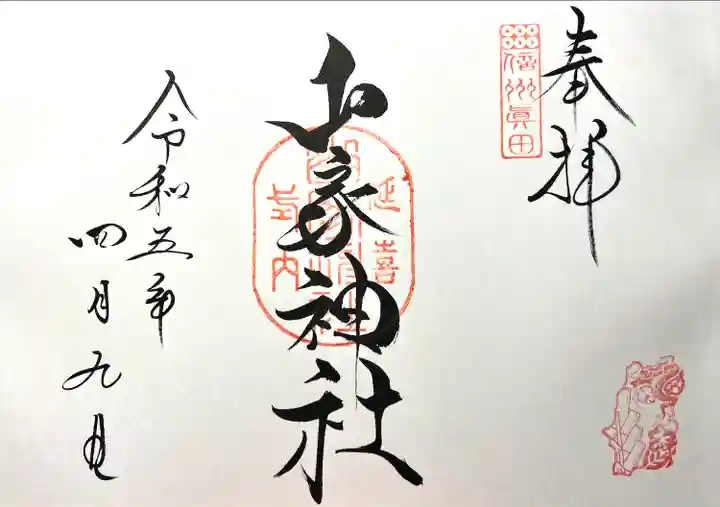 奉拝
信州眞田
山家神社
延喜
式内
令和五年
四月九日